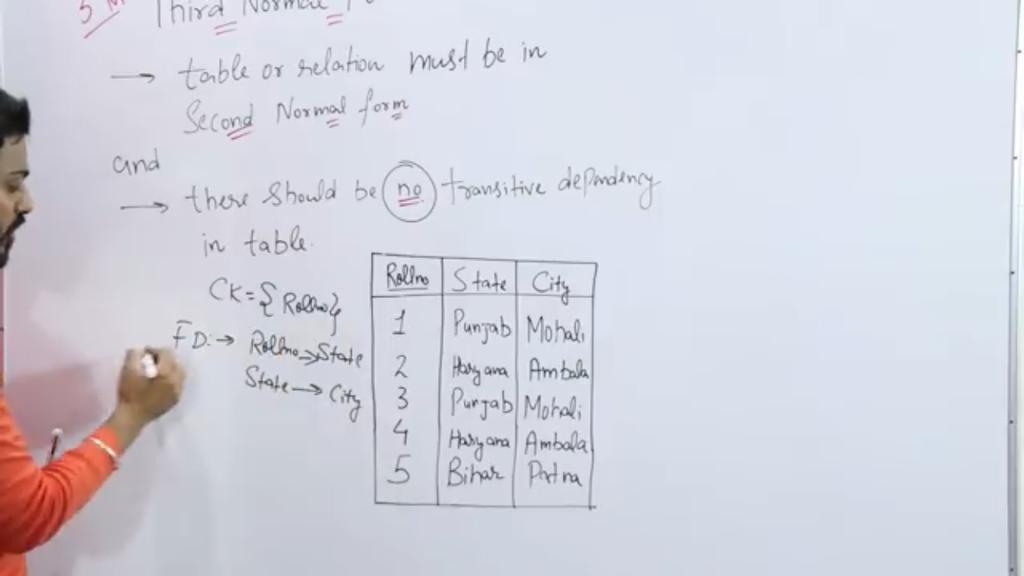 Third Normal
→ table or relation must be in
Second Normal form
and
→ there should be no transitive dependency
in table.
CK = { Rollno}
FD:→ Rollno→State
State → City
Rollno State City
1 Punjab Mohali
2 Haryana Ambala
3 Punjab Mohali
4 Haryana Ambala
5 Bihar Patna